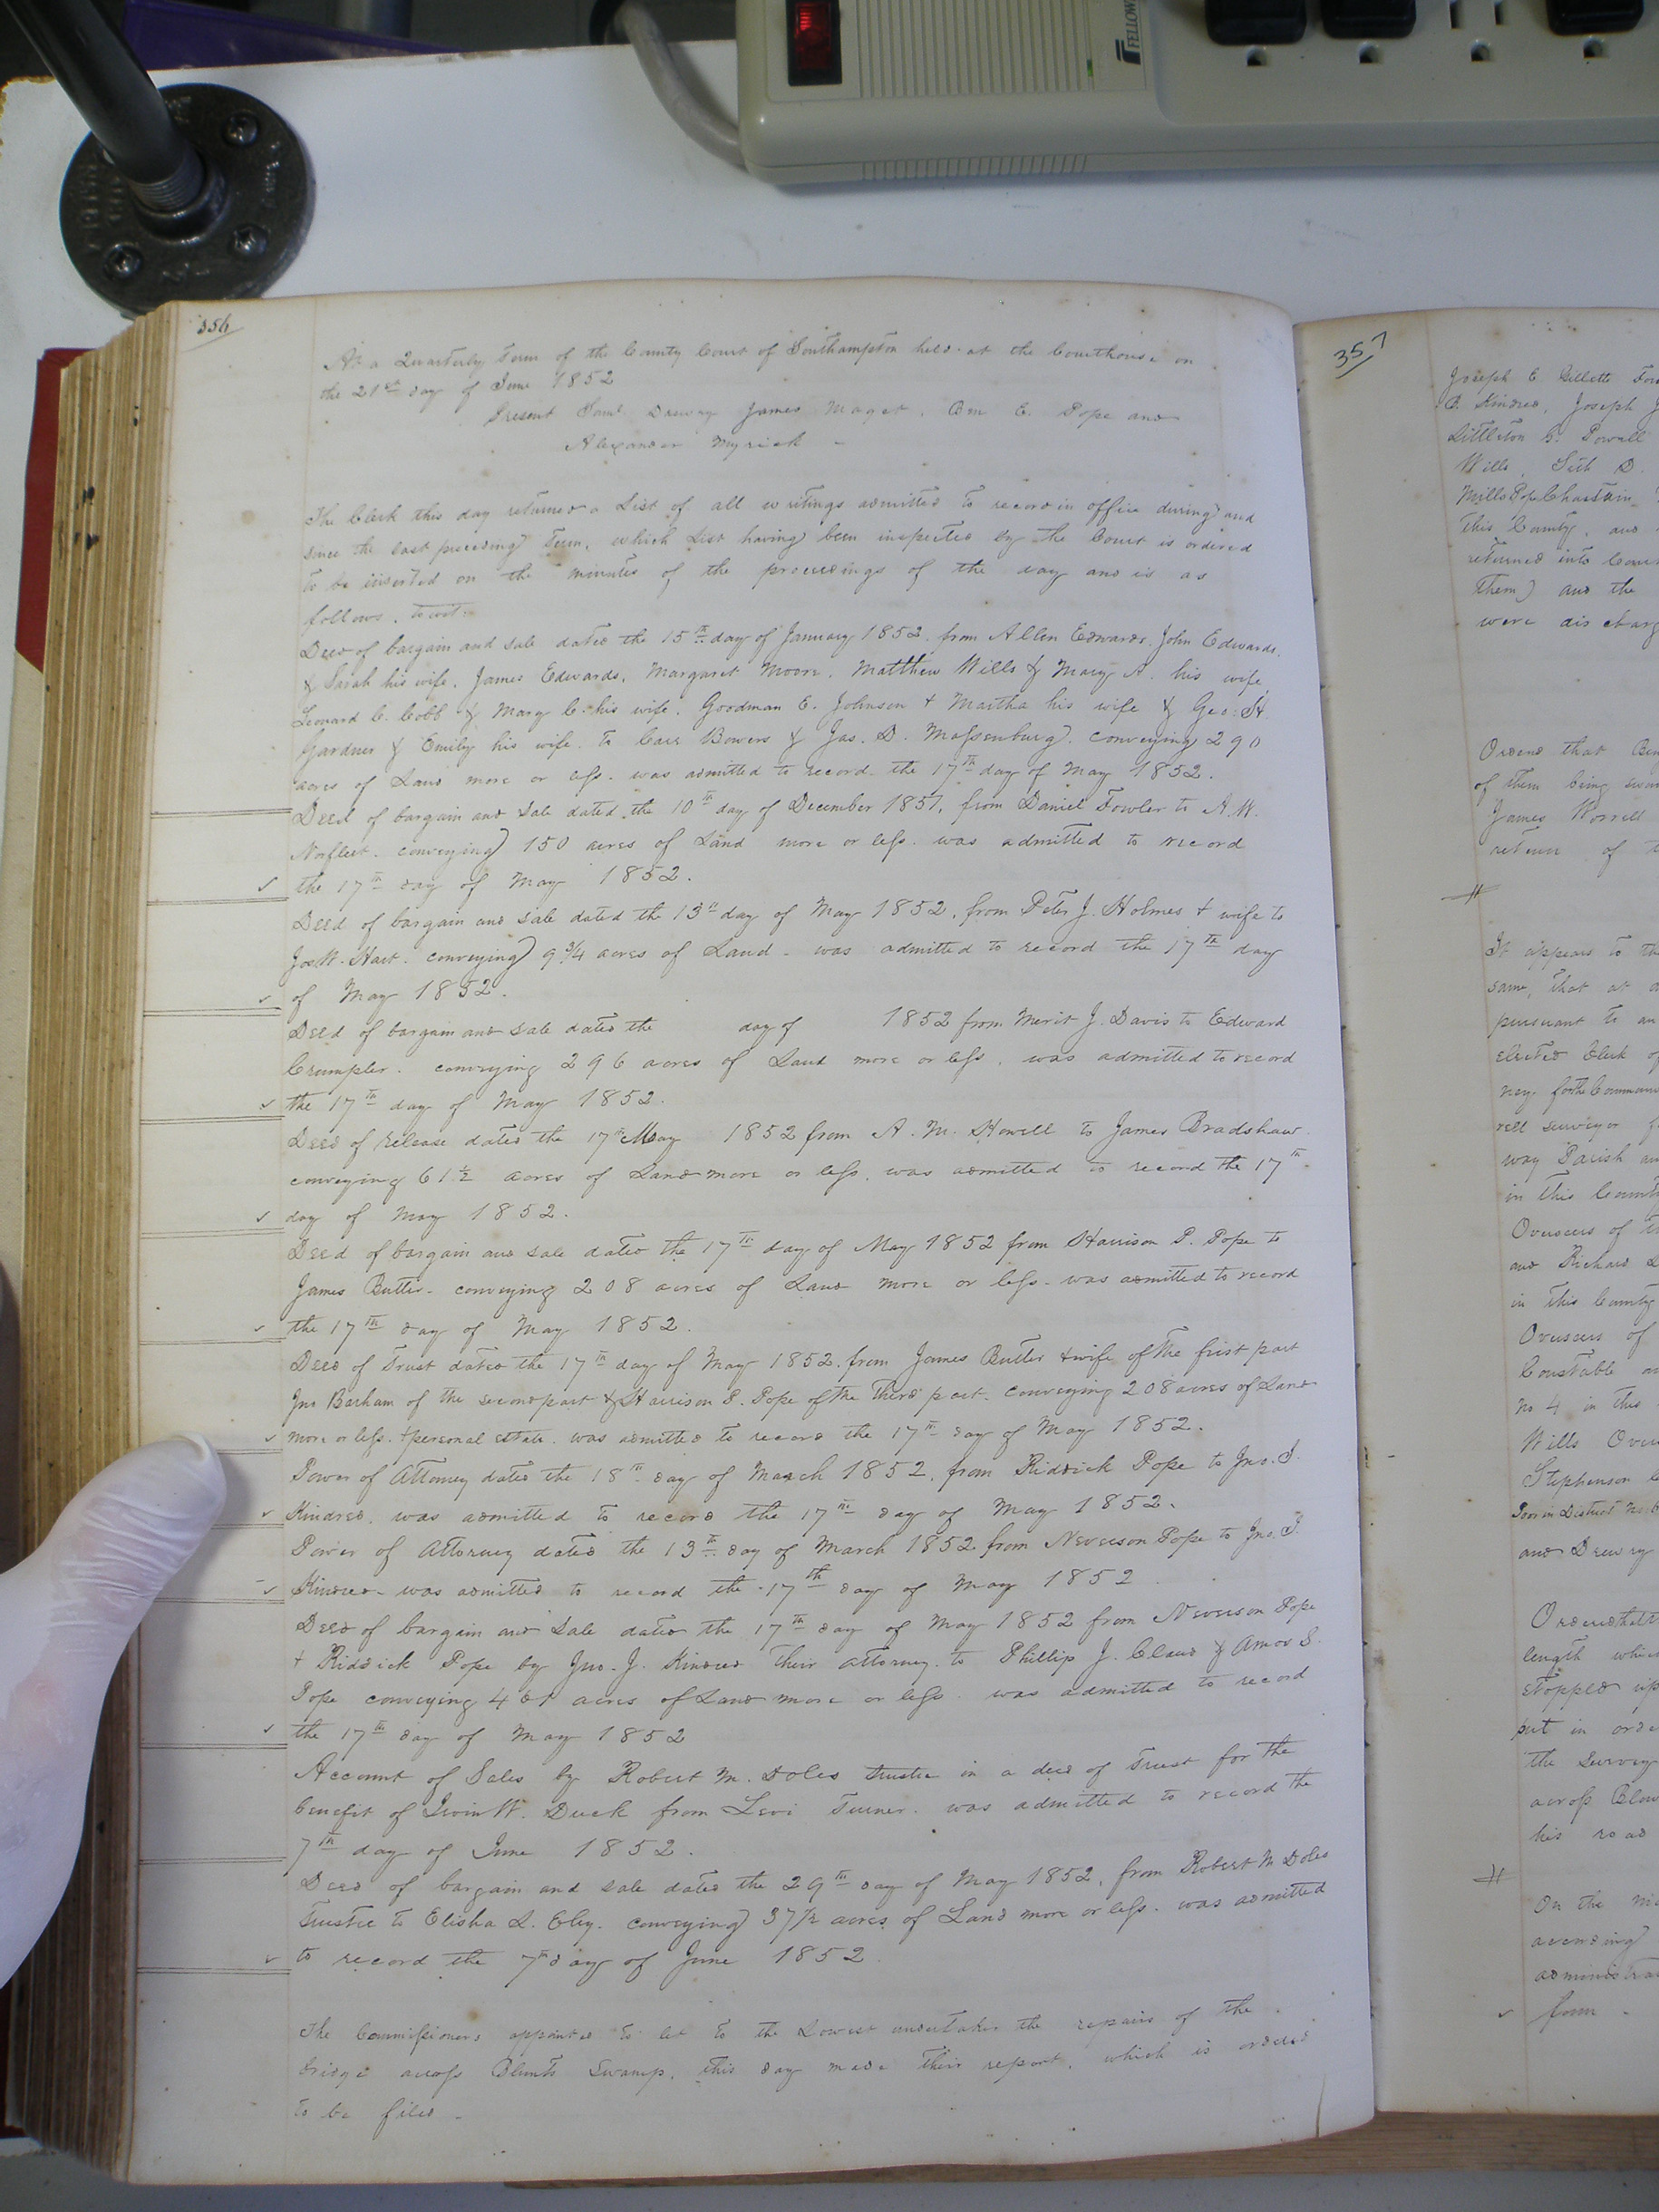 FELLOW
356
At a Quarterly Term of the County Court of Southampton held at the Courthouse on
the 21st day of June 1852
Present Saml. Drewry James Maget, Wm E. Pope and
Alexander Myrick -
The Clerk this day returned a List of all writings admitted to record in office during and
since the last preceeding Term, which List having been inspected by the Court is ordered
to be inserted on the minutes of the proceedings of the day and is as
follows, to wit.
Deed of bargain and sale dated the 15th day of January 1852 from Allen Edwards, John Edwards,
& Sarah his wife, James Edwards, Margaret Moore, Matthew Wills & Mary A. his wife
Leonard C. Cobb & Mary C. his wife, Goodman E. Johnson + Martha his wife & Geo. H.
Gardner & Emily his wife to Carr Bowers & Jas. D. Massenburg, conveying 290
acres of Land more or less was admitted to record the 17th day of May 1852.
Deed of bargain and sale dated the 10th day of December 1851, from Daniel Fowler to A. W.
Norfleet conveying 150 acres of Land more or less was admitted to record
the 17th day of May 1852.
Deed of bargain and sale dated the 13th day of May 1852, from Peter J. Holmes + wife to
Jos W. Hart conveying 9 3/4 acres of Land - was admitted to record the 17th day
of May 1852.
Deed of bargain and sale dated the day of 1852 from Merit J. Davis to Edward
Crumpler conveying 296 acres of Land more or less, was admitted to record
the 17th day of May 1852.
Deed of release dated the 17th May 1852 from A. M. Howell to James Bradshaw
conveying 61 1/2 acres of Land more or less, was admitted to record the 17th
day of May 1852.
Deed of bargain and sale dated the 17th day of May 1852 from Harrison P. Pope to
James Butler - conveying 208 acres of Land more or less - was admitted to record
the 17th day of May 1852.
Deed of Trust dated the 17th day of May 1852, from James Butler + wife of the first part
Jno Barham of the second part & Harrison P. Pope of the third part conveying 208 acres of Land
more or less + personal estate was admitted to record the 17th day of May 1852.
Power of Attorney dated the 18th day of March 1852, from Riddick Pope to Jno. J.
Kindred, was admitted to record the 17th day of May 1852.
Power of Attorney dated the 13th day of March 1852 from Neverson Pope to Jno. J.
Kindred - was admitted to record the 17th day of May 1852
Deed of bargain and Sale dated the 17th day of May 1852 from Neverson Pope
+ Riddick Pope by Jno. J. Kindred their attorney to Phillip J. Claud & Amos S.
Pope conveying acres of Land more or less was admitted to record
the 17th day of May 1852
Account of Sales by Robert M. Doles trustee in a deed of Trust for the
benefit of W. Duck from Levi Turner was admitted to record the
7th day of June 1852.
Deed of bargain and sale dated the 29th day of May 1852, from Robert M Doles
Trustee to Elisha L. Eley, conveying 37 1/2 acres of Land more or less was admitted
to record the 7th day of June 1852
The Commissioners appointed to let to the Lowest undertaker the repairs of the
bridge across Blunts Swamp, this day made their report, which is ordered
to be filed -
357
Joseph E. Gillette
B. Kindred, Joseph J
Littleton Powell
Wills, Seth D.
Mills Pope Chastain
This County, and
returned into Cour
them) and the
were discharg
Ordered that Ben
of them being swor
James Worrell
return of t
It appears to th
same, that at a
pursuant to an
elected Clerk of
ney for the Common
rell surveyor f
way Parish an
in this County
Overseers of th
and Richard
in this County
Overseers of
Constable an
no 4 in this
Wills Over
Stephenson
Poor in District No. 6
and Drewry
Ordered that
length whic
stopped up
put in orde
the Survey
across Blow
his road
On the mo
according
administrat
form -